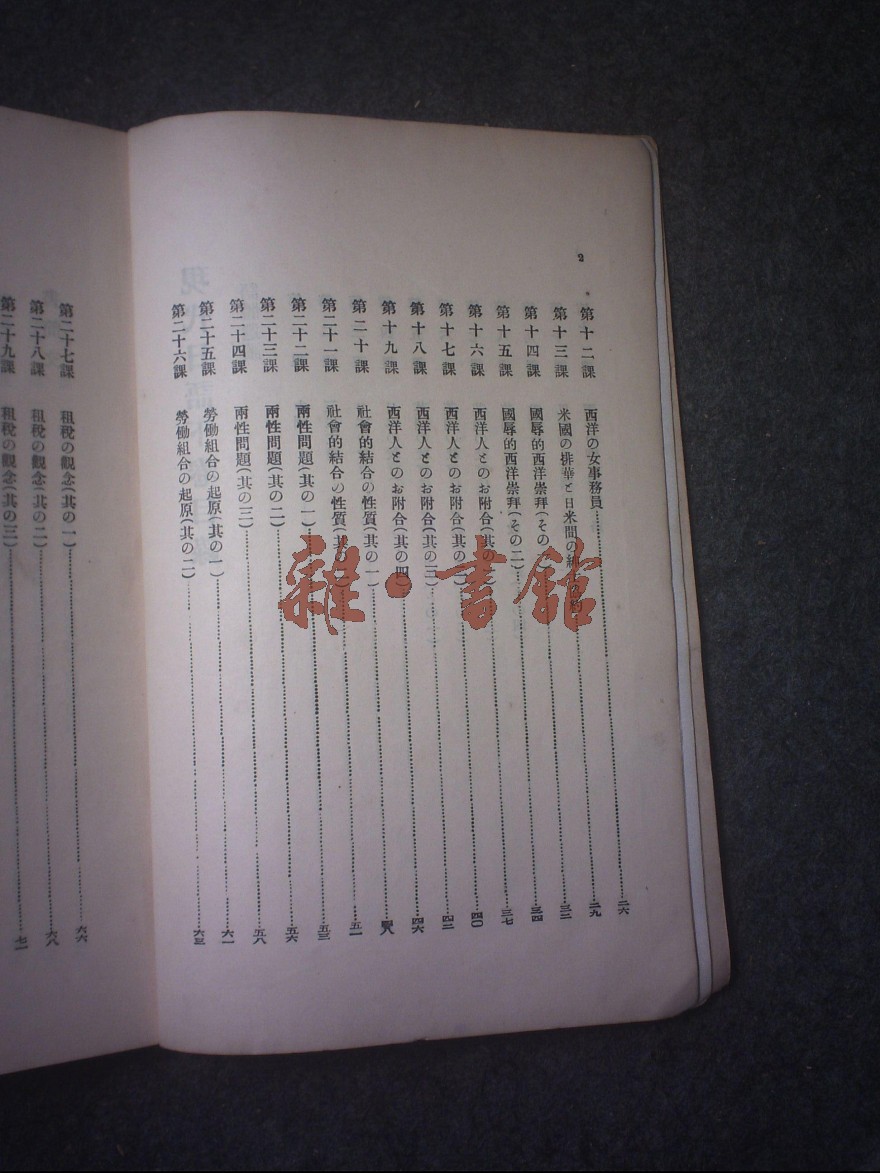 2
第十二課 西洋の女事務員 二六
第十三課 米國の排華と日米間の 約 二九
第十四課 國辱的西洋崇拜(その 三二
第十五課 國辱的西洋崇拜(その二) 三四
第十六課 西洋人とのお附合(其の 三七
第十七課 西洋人とのお附合(其の 四〇
第十八課 西洋人とのお附合(其の三) 四二
第十九課 西洋人とのお附合(其の四) 四六
第二十課 社會的結合の性質(其の一) 四八
第二十一課 社會的結合の性質(其の 五一
第二十二課 兩性問題(其の一) 五三
第二十三課 兩性問題(其の二) 五六
第二十四課 兩性問題(其の三) 五八
第二十五課 勞働組合の起原(其の一) 六一
第二十六課 勞働組合の起原(其の二) 六三
第二十七課 租稅の觀念(其の一) 六六
第二十八課 租稅の觀念(其の二) 六八
第二十九課 租稅の觀念(其の三) 七一
雜·書館